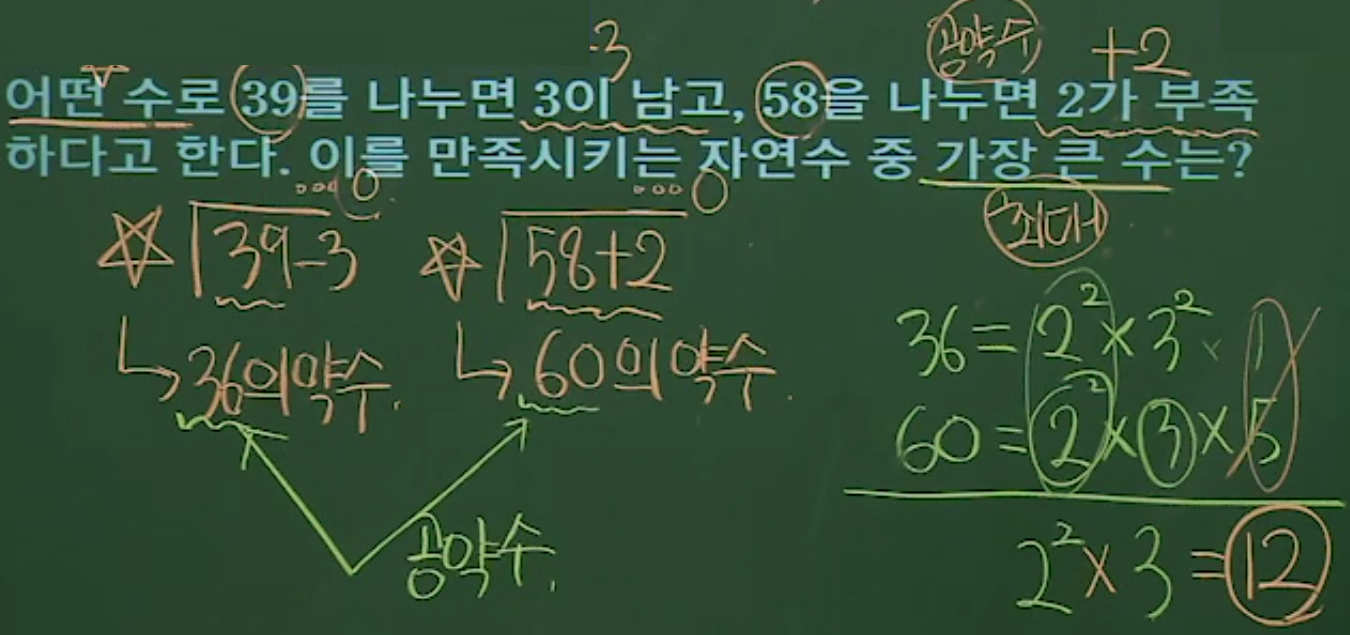 -3 공약수 +2
어떤 수로 39를 나누면 3이 남고, 58을 나누면 2가 부족
하다고 한다. 이를 만족시키는 자연수 중 가장 큰 수는?
…0 …0
최대
☆ 39-3 ☆ 58+2
36 = 2² × 3² × 1
↳ 36의 약수. ↳ 60의 약수.
60 = 2² × 3 × 5
공약수.
2² × 3 = 12